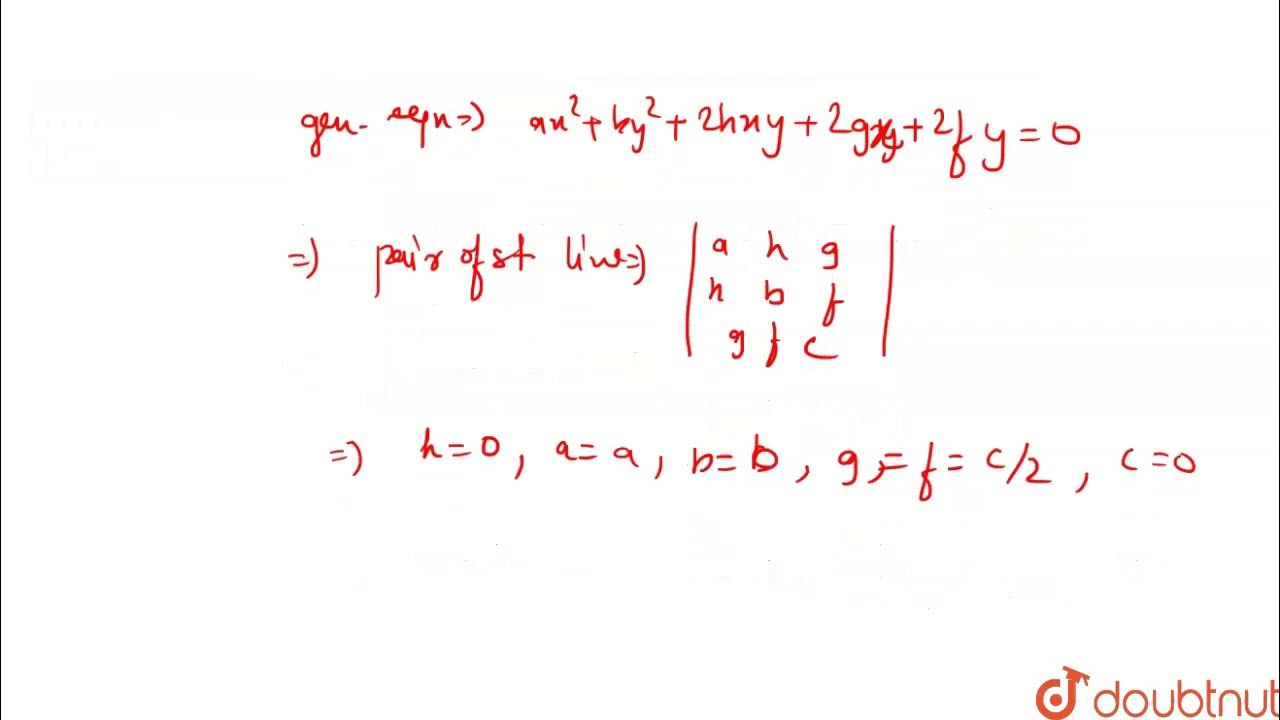 gen. eqn => ax²+by²+2hxy+2gx+2fy=0
=) pair of st line=) | a h g |
| h b f |
| g f c |
=) h=0, a=a, b=b, g,=f=c/2, c=0
doubtnut